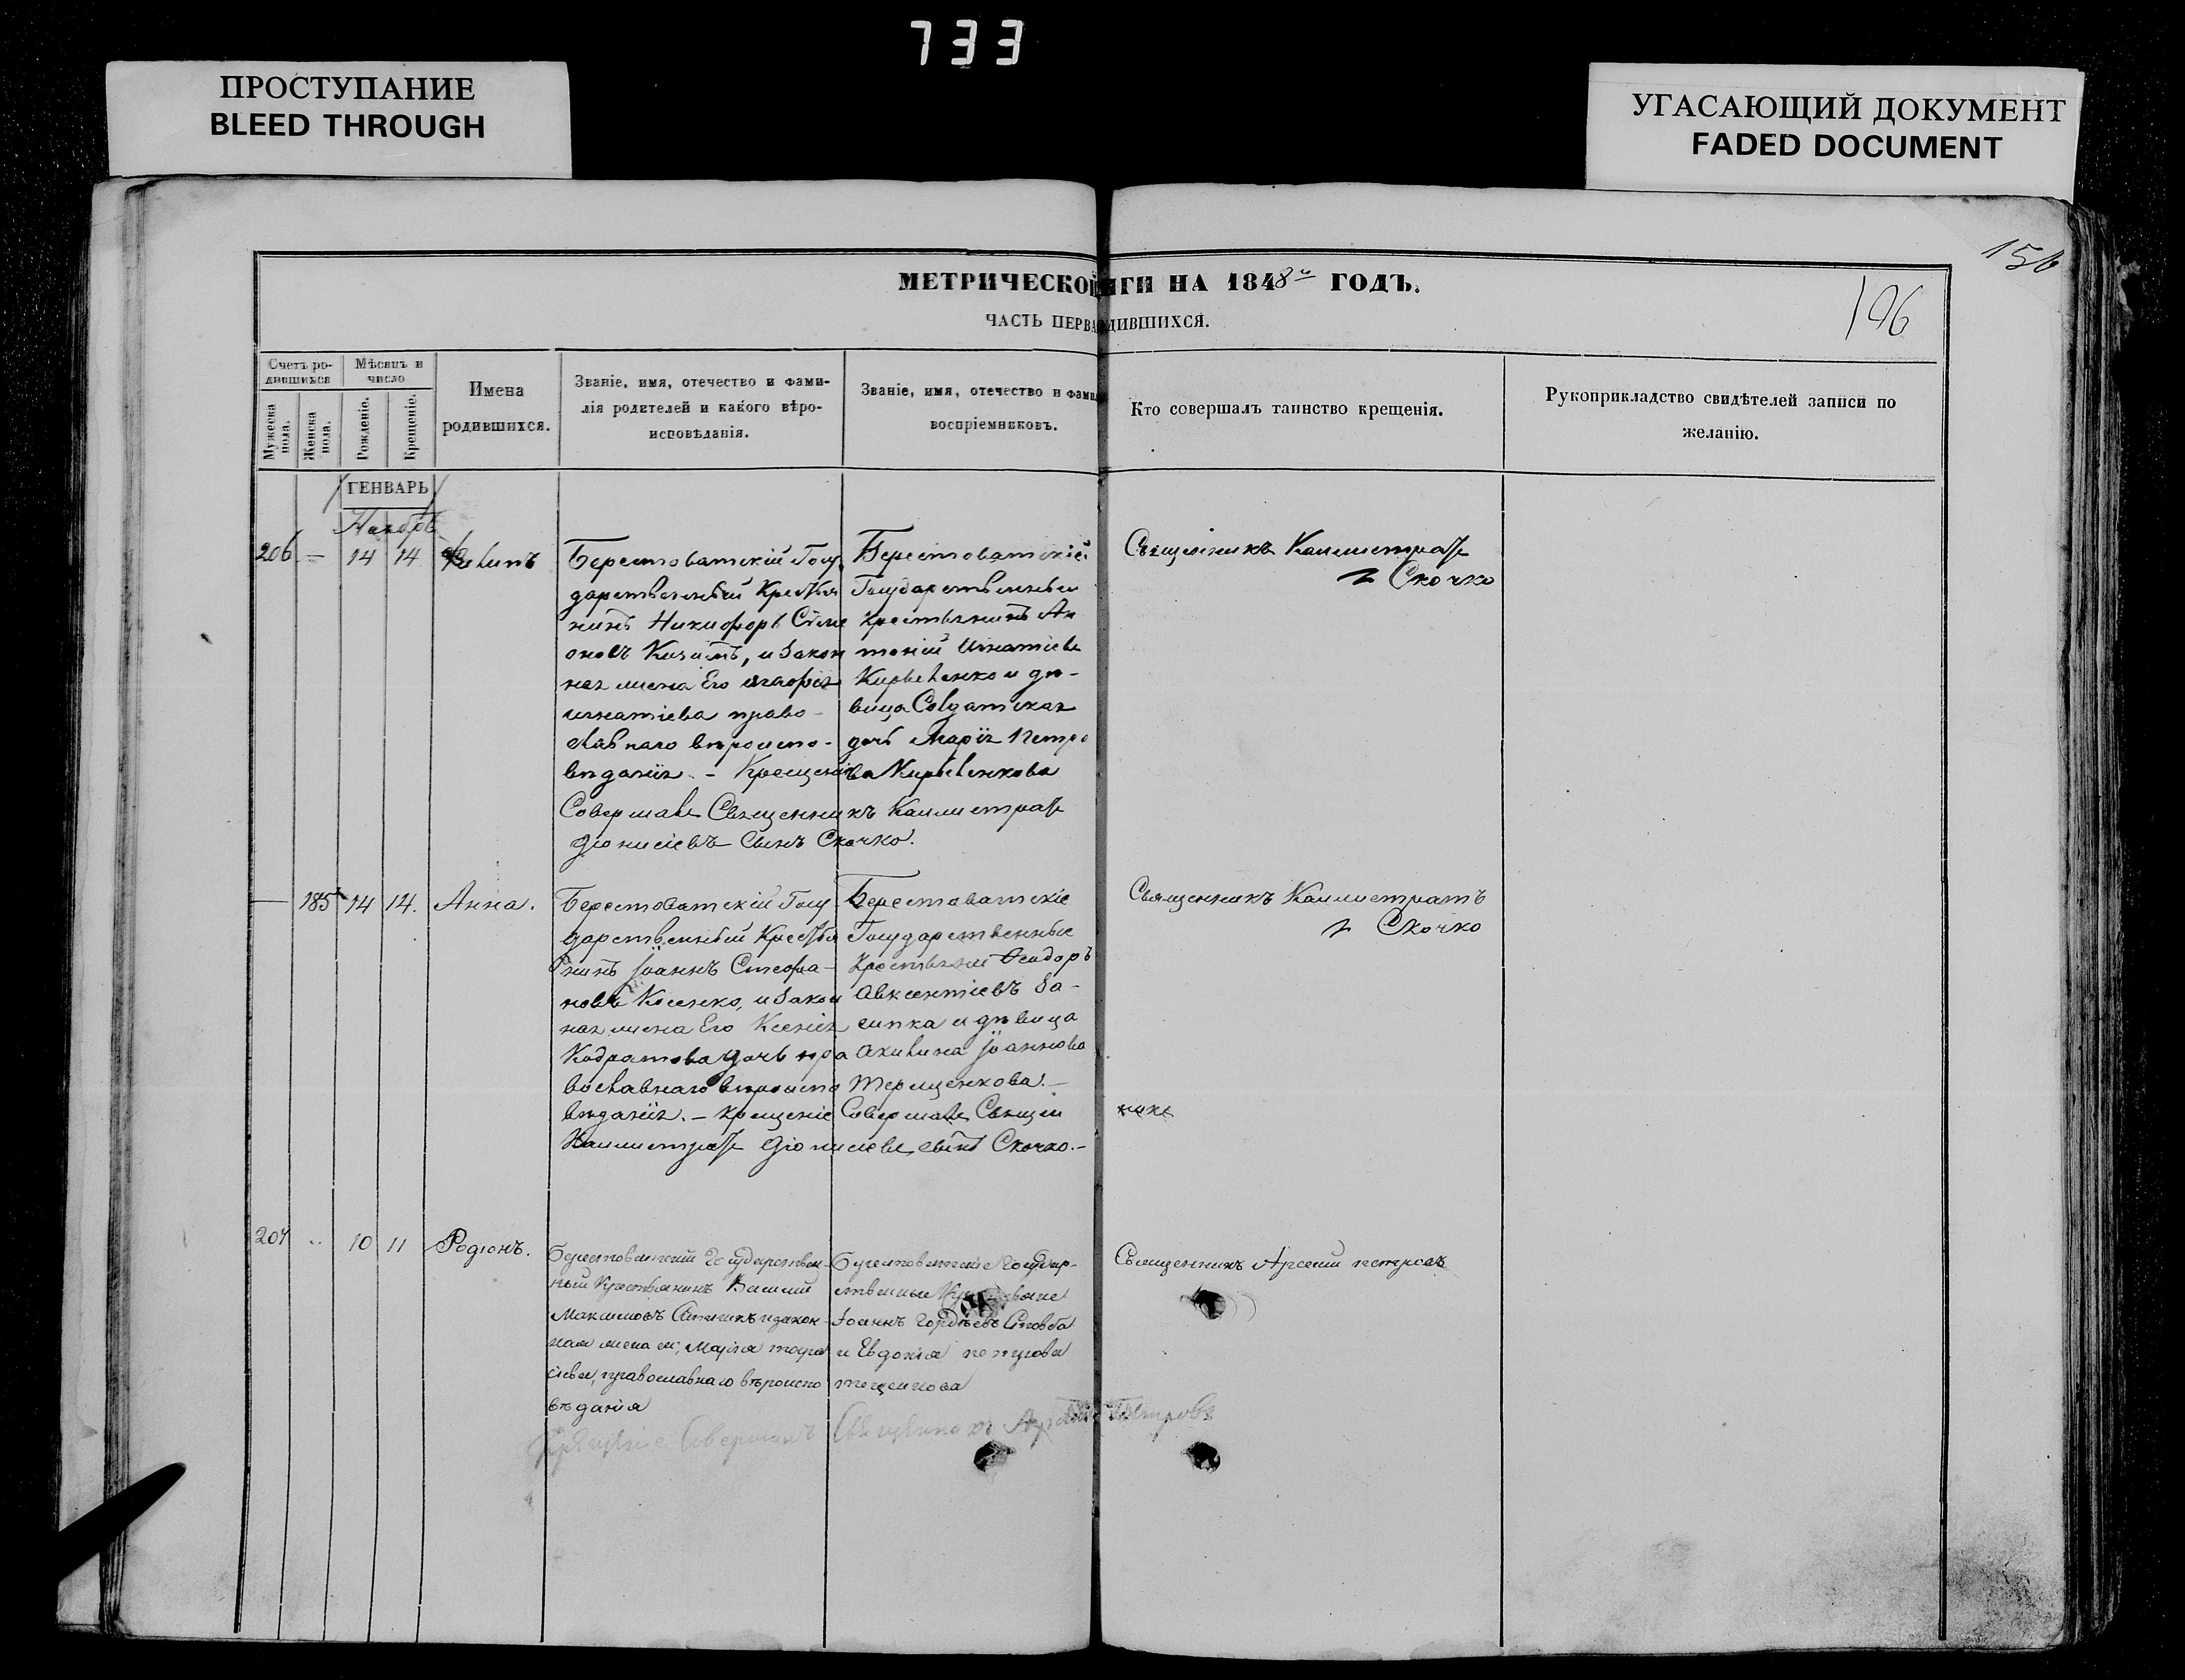 733
ПРОСТУПАНИЕ
BLEED THROUGH
УГАСАЮЩИЙ ДОКУМЕНТ
FADED DOCUMENT
156
196
МЕТРИЧЕСКОЙ
ИГИ НА 1848й ГОДЪ.
ЧАСТЬ ПЕРВА
ДИВШИХСЯ.
Счетъ ро-
дившихся
Мужеска
пола.
Женска
пола.
Мѣсяцъ и
число
Рожденіе.
Крещеніе.
Имена
родившихся.
Званіе, имя, отечество и фами-
лія родителей и какого вѣро-
исповѣданія.
Званіе, имя, отечество и фами
воспріемниковъ.
Кто совершалъ таинство крещенія.
Рукоприкладство свидѣтелей записи по
желанію.
ГЕНВАРЬ
206 — 14 14
Берестоватскій Госу
дарственный Крестья
нинъ Никифоръ Симе
оновъ и Закон
ная жена Его
игнатіева право-
славнаго вѣроиспо-
вѣданія. – Крещеніе
Совершалъ Священникъ Каллистратъ
Діонисіевъ Сынъ Скочко.
Берестоватскій
Государственный
Крестьянинъ Ан
тоній Игнатіевъ
и дѣ-
вица Солдатская
дочь Марія Петро
ва
Священникъ Каллистратъ
Скочко
— 185 14 14. Анна.
Берестоватскій Госу
дарственный Крестья
нинъ Іоаннъ Стефа-
новъ Косенко, и Закон
ная жена Его Ксенія
Кодратова дочь пра
вославнаго вѣроиспо
вѣданія. – крещеніе Совершалъ Священ
никъ
Каллистратъ Діонисіевъ сынъ Скочко.–
Берестоватскіе
Государственные
Крестьяне Феодоръ
Авксентіевъ За-
сипка и дѣвица
Акилина Іоаннова
Терещенкова.–
Священникъ Каллистратъ
Скочко
207 .. 10 11 Родіонъ.
Берестоватскій Государствен-
ный Крестьянинъ Василій
Максимовъ и закон
ная жена ег, Марія
сіева, православнаго вѣроиспо
вѣданія
Берестоватскіе Государ-
ственные
Іоаннъ Гордѣевъ
и Евдокія петрова
Священникъ Арсеній петровъ
Крещеніе Совершалъ Священникъ Арсеній Петровъ